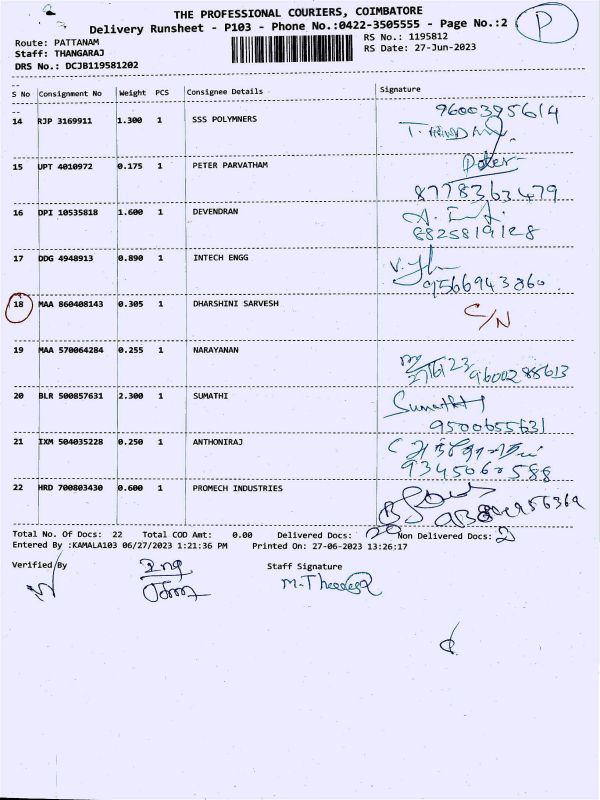 THE PROFESSIONAL COURIERS, COIMBATORE
Delivery Runsheet - P103 - Phone No.:0422-3505555 - Page No.:2
P
Route: PATTANAM
RS No.: 1195812
Staff: THANGARAJ
RS Date: 27-Jun-2023
DRS No.: DCJB119581202
S No Consignment No Weight PCS Consignee Details Signature
14 RJP 3169911 1.300 1 SSS POLYMNERS 9600395614
15 UPT 4010972 0.175 1 PETER PARVATHAM Peter
8778363479
16 DPI 10535818 1.600 1 DEVENDRAN
8825819128
17 DDG 4948913 0.890 1 INTECH ENGG
9566943860
18 MAA 860408143 0.305 1 DHARSHINI SARVESH C/N
19 MAA 570064284 0.255 1 NARAYANAN 27/6/23 9600288613
20 BLR 500857631 2.300 1 SUMATHI Sumathi
9500655631
21 IXM 504035228 0.250 1 ANTHONIRAJ
9345060588
22 HRD 700803430 0.600 1 PROMECH INDUSTRIES
Total No. Of Docs: 22 Total COD Amt: 0.00 Delivered Docs: 20 Non Delivered Docs: 2
Entered By :KAMALA103 06/27/2023 1:21:36 PM Printed On: 27-06-2023 13:26:17
Verified By Staff Signature